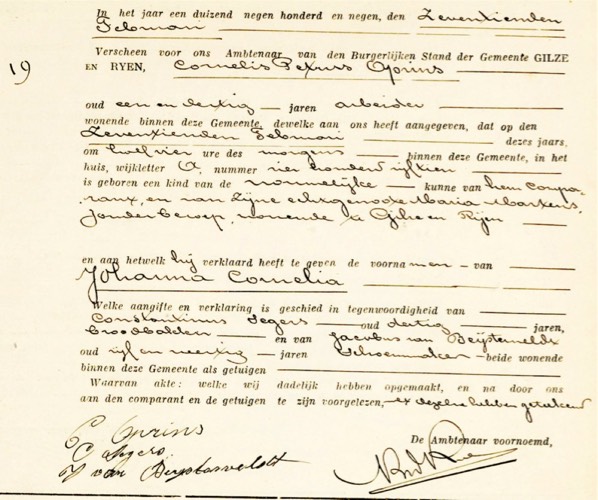 In het jaar een duizend negen honderd en negen, den Zeventienden
Februari
Verscheen voor ons Ambtenaar van den Burgerlijken Stand der Gemeente GILZE
19
EN RYEN, Cornelis Petrus Oprins
oud een en dertig jaren arbeider
wonende binnen deze Gemeente, dewelke aan ons heeft aangegeven, dat op den
Zeventienden Februari dezes jaars,
om half vier ure des morgens binnen deze Gemeente, in het
huis, wijkletter A, nummer vier honderd vijftien
is geboren een kind van de vrouwelijke kunne van hem compa-
rant, en van zijne echtgenoote Maria Martens,
zonder beroep, wonende te Gilze en Rijen
en aan hetwelk hij verklaard heeft te geven de voornamen van
Johanna Cornelia
Welke aangifte en verklaring is geschied in tegenwoordigheid van
Constantinus Segers oud dertig jaren,
en van Jacobus van Beijsterveldt
oud vijf en veertig jaren schoenmaker beide wonende
binnen deze Gemeente als getuigen
Waarvan akte: welke wij dadelijk hebben opgemaakt, en na door ons
aan den comparant en de getuigen te zijn voorgelezen, met dezelve hebben geteekend
C Oprins
C Segers
J van Beijsterveldt
De Ambtenaar voornoemd,